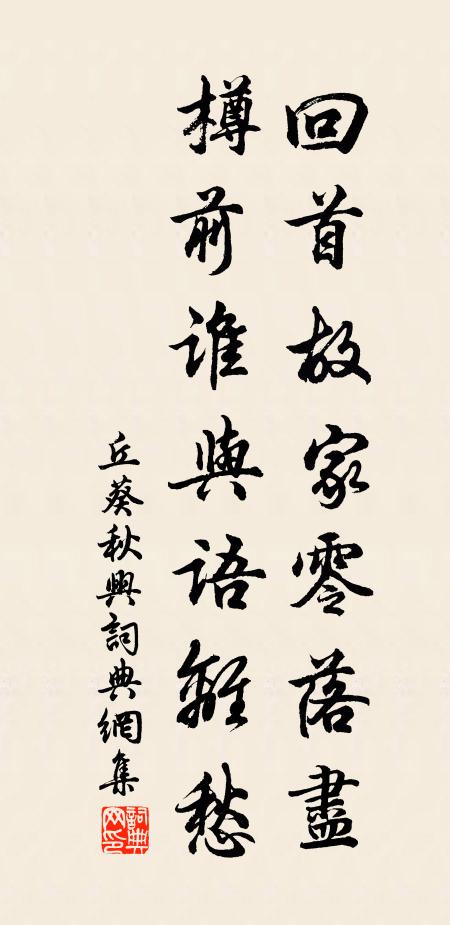 回首故家零落盡
樽前誰與語離愁
丘葵秋興詞典網集
詞典網印